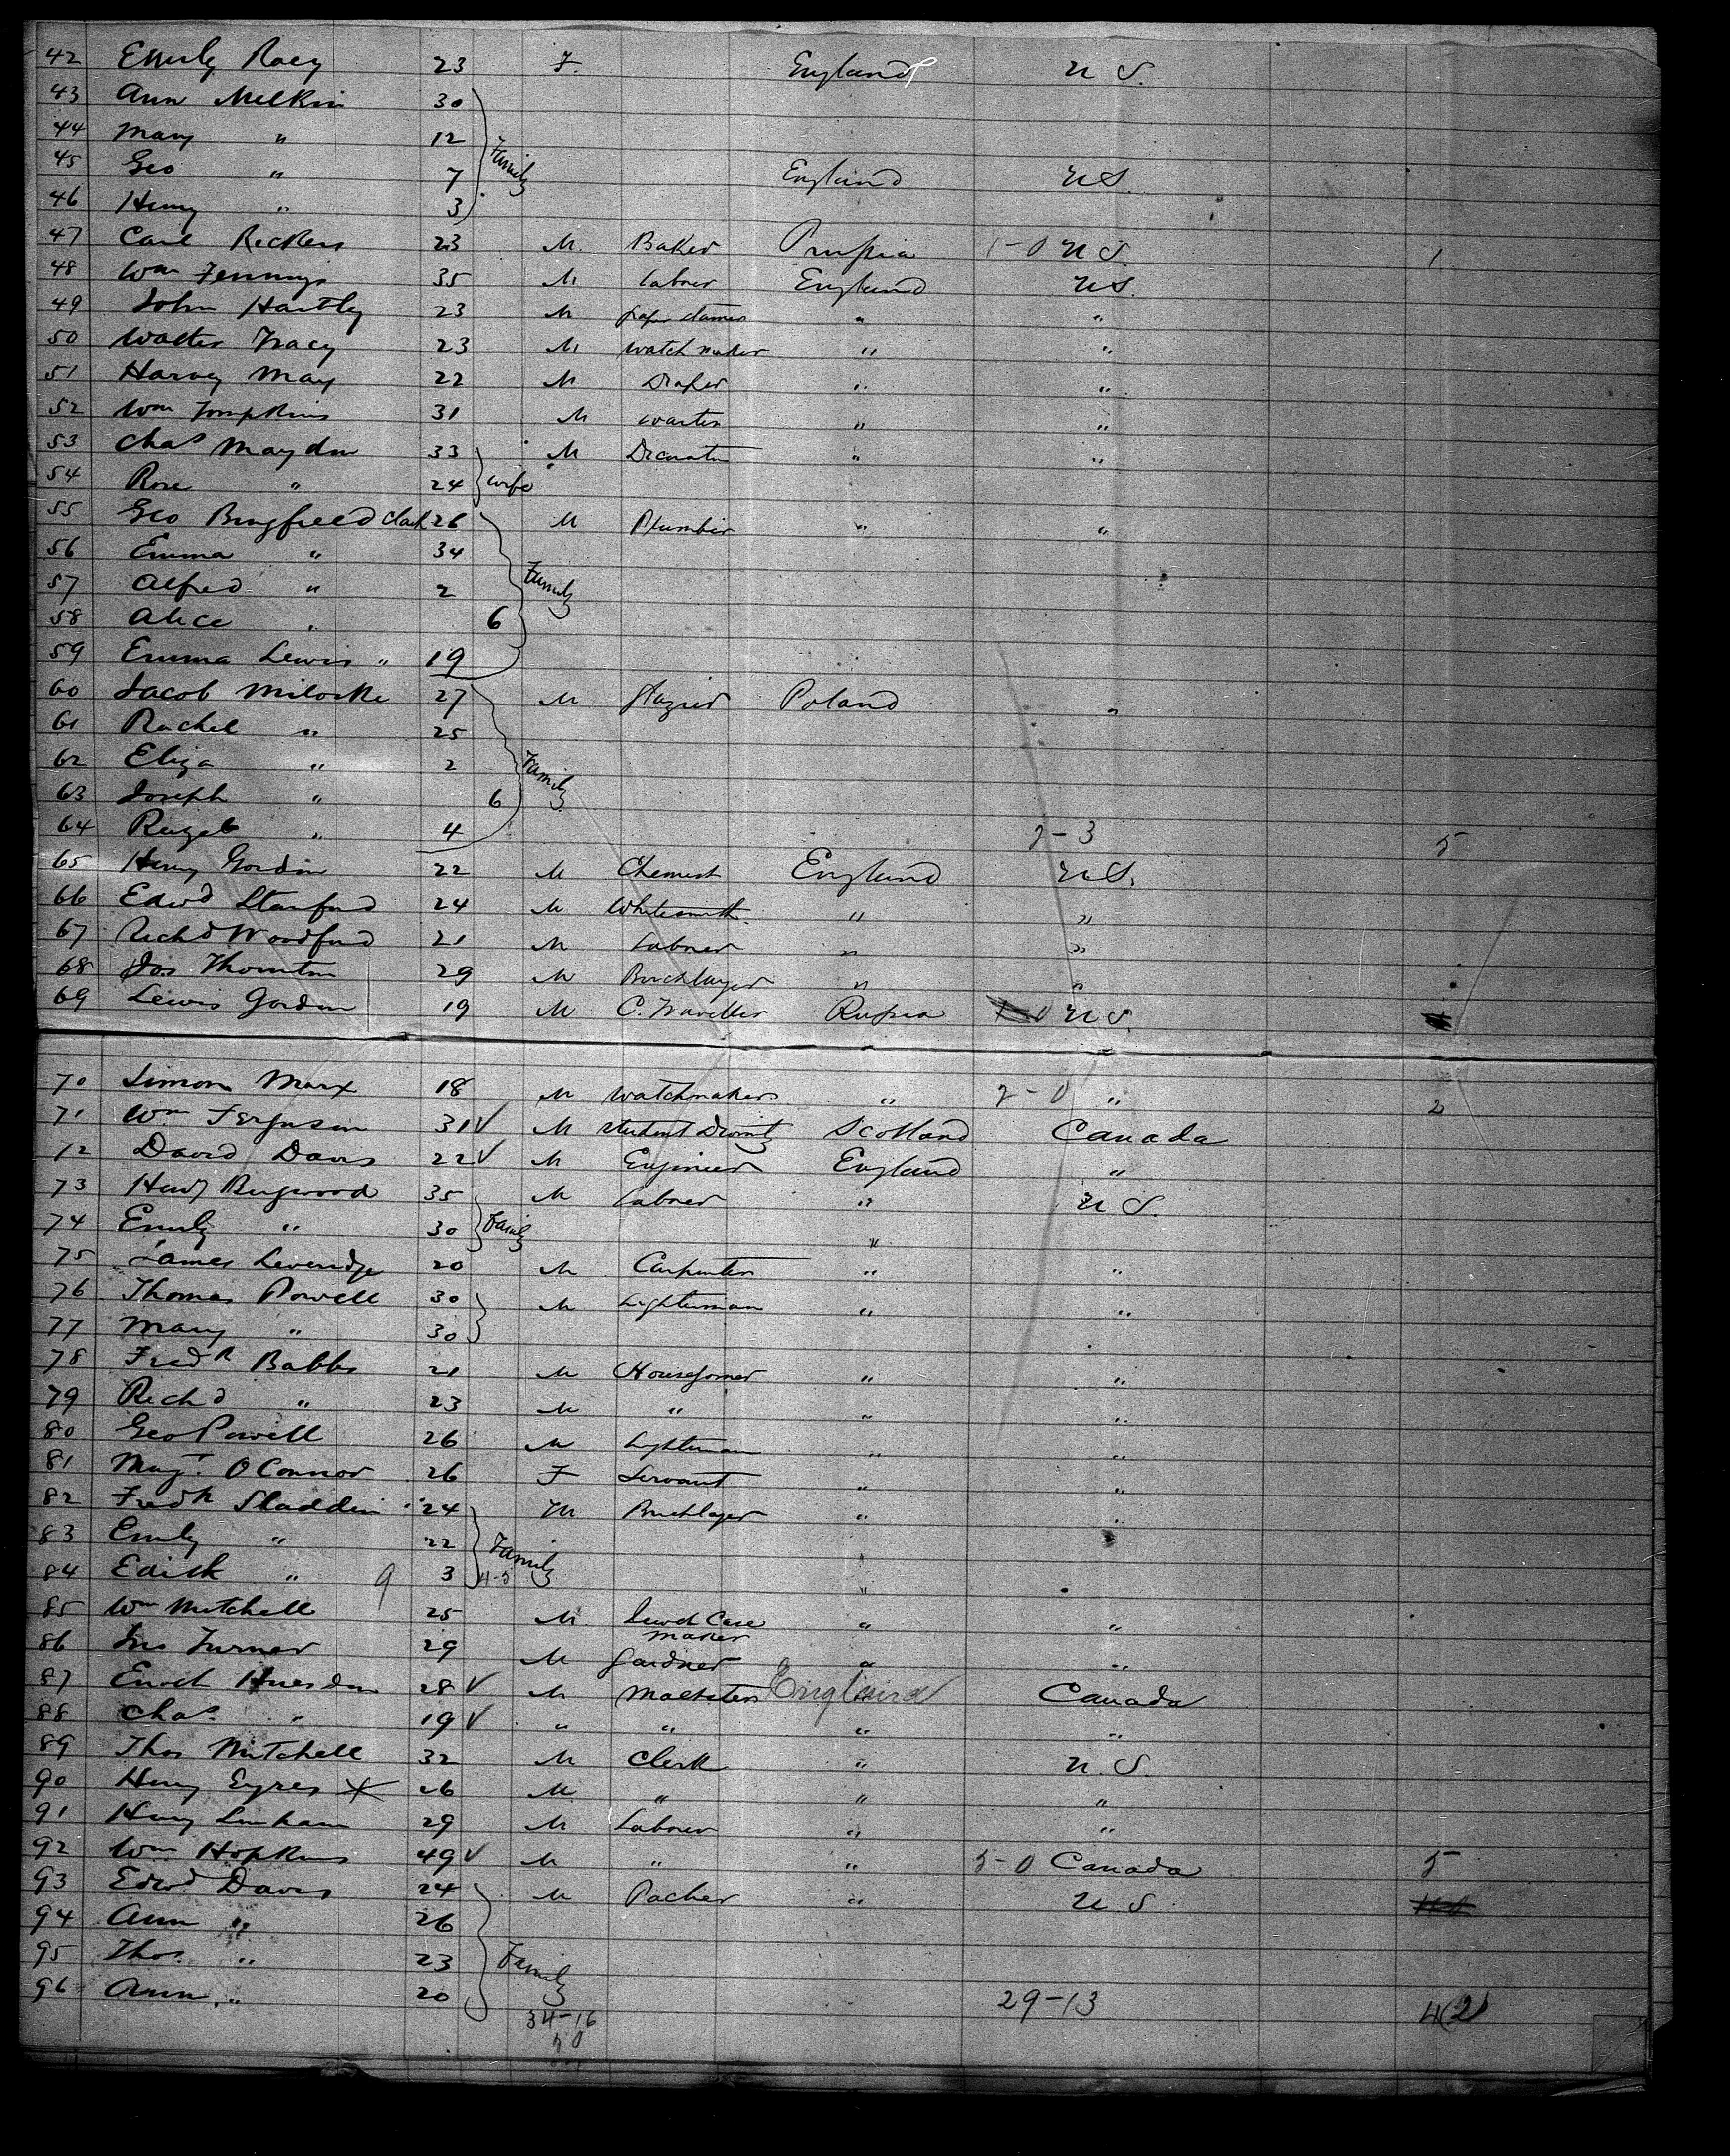 42 Emily Racy 23 F. England U S.
43 Ann Melkin 30
44 Mary " 12
45 Geo " 7 Family England U S.
46 Henry " 3
47 Carl Reckers 23 M. Baker Prussia 1-0 U S. 1
48 Wm Jennings 35 M Labrer England U S.
49 John Hartley 23 M paper " "
50 Walter Tracy 23 M Watch maker " "
51 Harvey May 22 M Draper " "
52 Wm Tompkins 31 M waiter " "
53 Chas Maydon 33 M Decorator " "
54 Rose " 24 wife
55 Geo Bingfield Clark 26 M Plumber " "
56 Emma " 34
57 Alfred " 2 Family
58 Alice " 6
59 Emma Lewis " 19
60 Jacob Miloske 27 M Glazier Poland "
61 Rachel " 25
62 Eliza " 2 Family
63 Joseph " 6
64 " 4 2-3 5
65 Henry Gordon 22 M Chemist England U S.
66 Edwd Stanford 24 M Whitesmith " "
67 Richd Woodford 21 M Labrer " "
68 Jos Thornton 29 M Bricklayer " "
69 Lewis Gordon 19 M C. Traveller Russia U S.
70 Simon Marx 18 M Watchmaker " 2-0 " 2
71 Wm Ferguson 31 V M Student Divinity Scotland Canada
72 David Davis 22 V M Engineer England "
73 Heny 35 M Labrer " U S.
74 Emily " 30 Family "
75 James Leveridge 20 M Carpenter " "
76 Thomas Powell 30 M Lighterman " "
77 Mary " 30
78 Fredk Babbs 21 M " "
79 Richd " 23 M " " "
80 Geo Powell 26 M Lighterman " "
81 Mary O Connor 26 F Servant " "
82 Fredk Sladdin 24 M Bricklayer " "
83 Emily " 22 Family
84 Edith " 9 3 "
85 Wm Mitchell 25 M Jewel Case maker " "
86 Jno Turner 29 M Gardner " "
87 Enoch 28 V M England Canada
88 Chas " 19 V " " " "
89 Thos Mitchell 32 M Clerk " U. S.
90 Henry Eyres X 26 M " " "
91 Henry Linham 29 M Labrer " "
92 Wm Hopkins 49 V M " " 5-0 Canada 5
93 Edwd Davis 24 M Packer " U S
94 Ann " 26
95 Thos " 23 Family
96 Ann " 20 29-13 4(2)
34-16
50